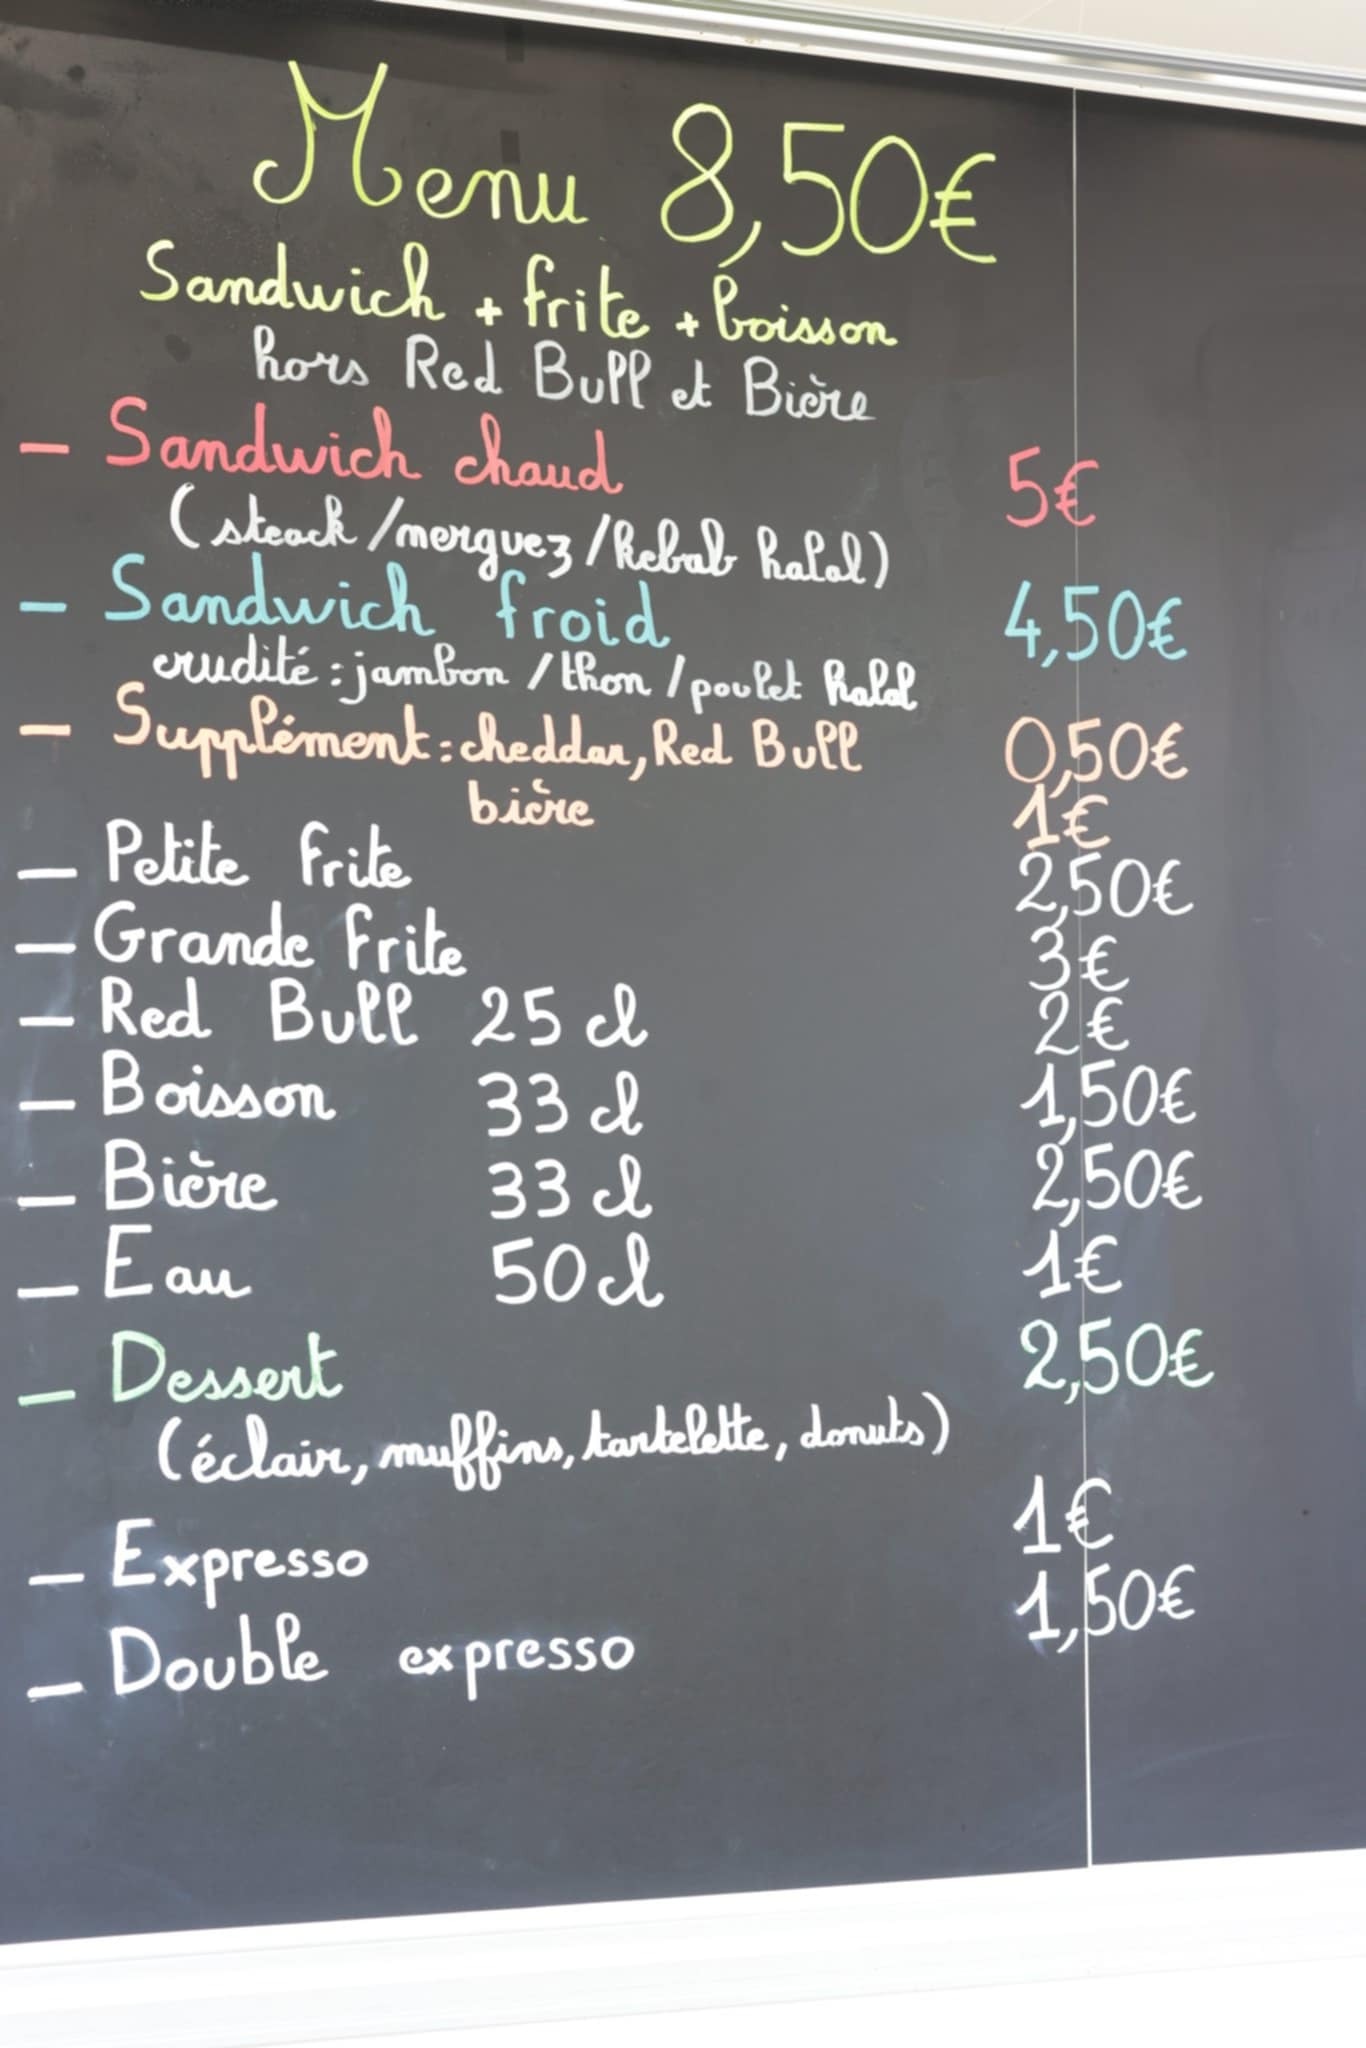 Menu 8,50€
Sandwich + frite + boisson
hors Red Bull et Bière
- Sandwich chaud 5€
(steack/merguez/Kebab halal)
- Sandwich froid 4,50€
crudité : jambon / thon / poulet halal
- Supplément : cheddar, Red Bull 0,50€
bière 1€
- Petite frite 2,50€
- Grande frite 3€
- Red Bull 25 cl 2€
- Boisson 33 cl 1,50€
- Bière 33 cl 2,50€
- Eau 50 cl 1€
- Dessert 2,50€
(éclair, muffins, tartelette, donuts)
- Expresso 1€
- Double expresso 1,50€